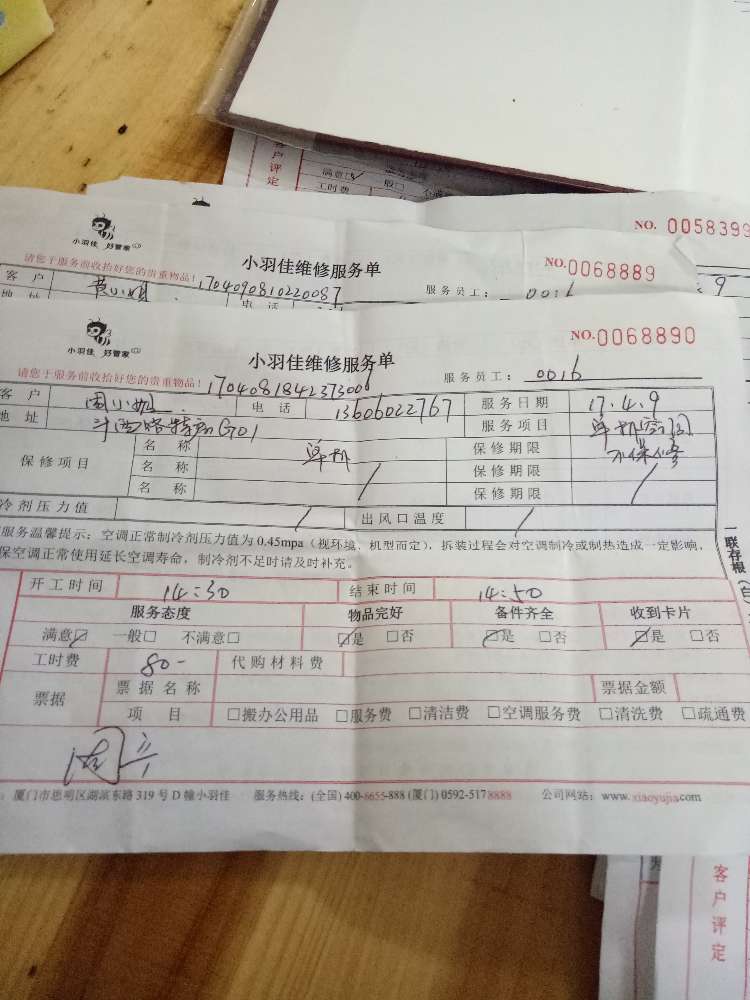 客户评定
满意☑ 般□ 不
工时费
NO. 0058399
小羽佳 好管家
小羽佳维修服务单
NO.0068889
请您于服务前收拾好您的贵重物品!
170409810220087
服务员工: 0016
客 户 黄小姐
地 址
电 话
9
小羽佳 好管家
小羽佳维修服务单
NO.0068890
请您于服务前收拾好您的贵重物品!
服务员工: 0016
客 户 周小姐 电 话 13606022767 服务日期 17.4.9
地 址 服务项目
保修项目 名 称 单机 保修期限 不保修
名 称 / 保修期限 /
名 称 保修期限
冷剂压力值 / 出风口温度 /
服务温馨提示：空调正常制冷剂压力值为 0.45mpa（视环境、机型而定），拆装过程会对空调制冷或制热造成一定影响，
保空调正常使用延长空调寿命，制冷剂不足时请及时补充。
一联存根（白
开工时间 14:30 结束时间 14:50
服务态度 物品完好 备件齐全 收到卡片
满意☑ 一般□ 不满意□ ☑是 □否 ☑是 □否 ☑是 □否
工时费 80- 代购材料费
票据 票据名称 票据金额
项 目 □搬办公用品 □服务费 □清洁费 □空调服务费 □清洗费 □疏通费
：厦门市思明区湖滨东路 319 号 D 幢小羽佳 服务热线：(全国) 400-8655-888 (厦门) 0592-5178888 公司网站：www.xiaoyujia.com
客户评定